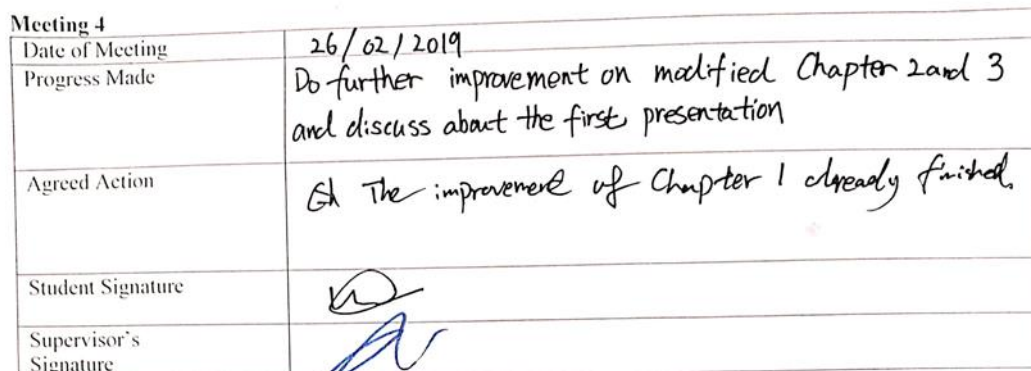 Meeting 4
Date of Meeting 26/02/2019
Progress Made Do further improvement on modified Chapter 2 and 3
and discuss about the first presentation
Agreed Action The improvement of Chapter 1 already finished.
Student Signature
Supervisor's
Signature